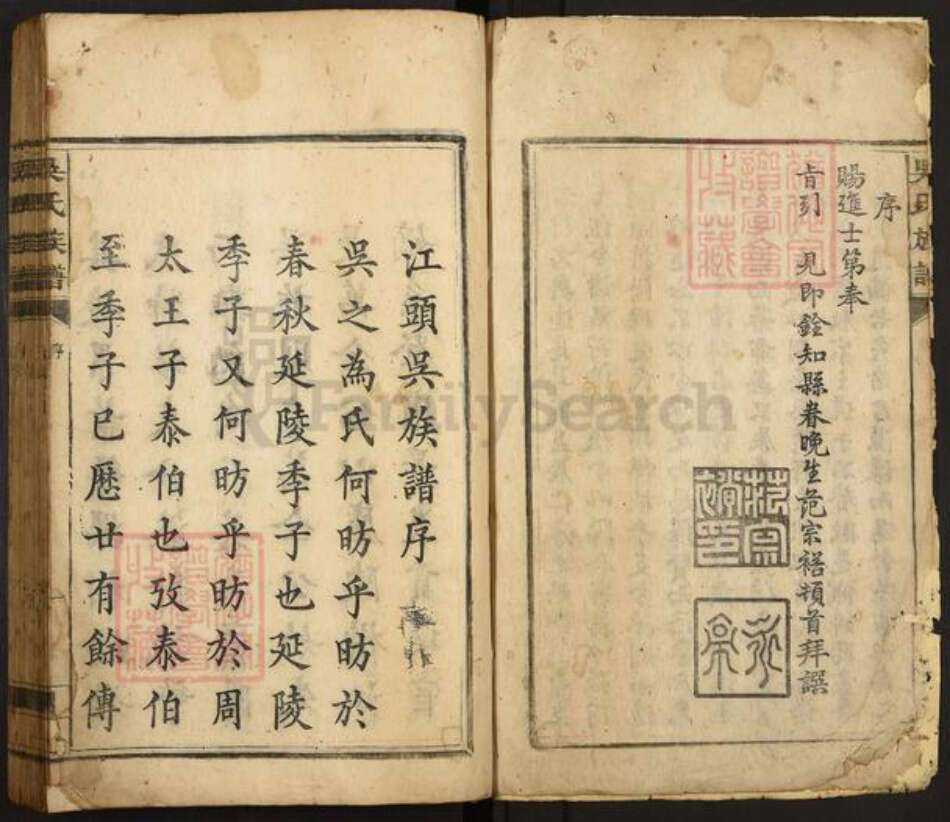 吳氏族譜
序
賜進士第奉
旨引 見即銓知縣眷晚生范宗禧頓首拜譔
范宗
永亭
江頭吳族譜序
吳之為氏何昉乎昉於
春秋延陵季子也延陵
季子又何昉乎昉於周
太王子泰伯也攷泰伯
至季子已歷廿有餘傳
吳氏族譜
序
FamilySearch